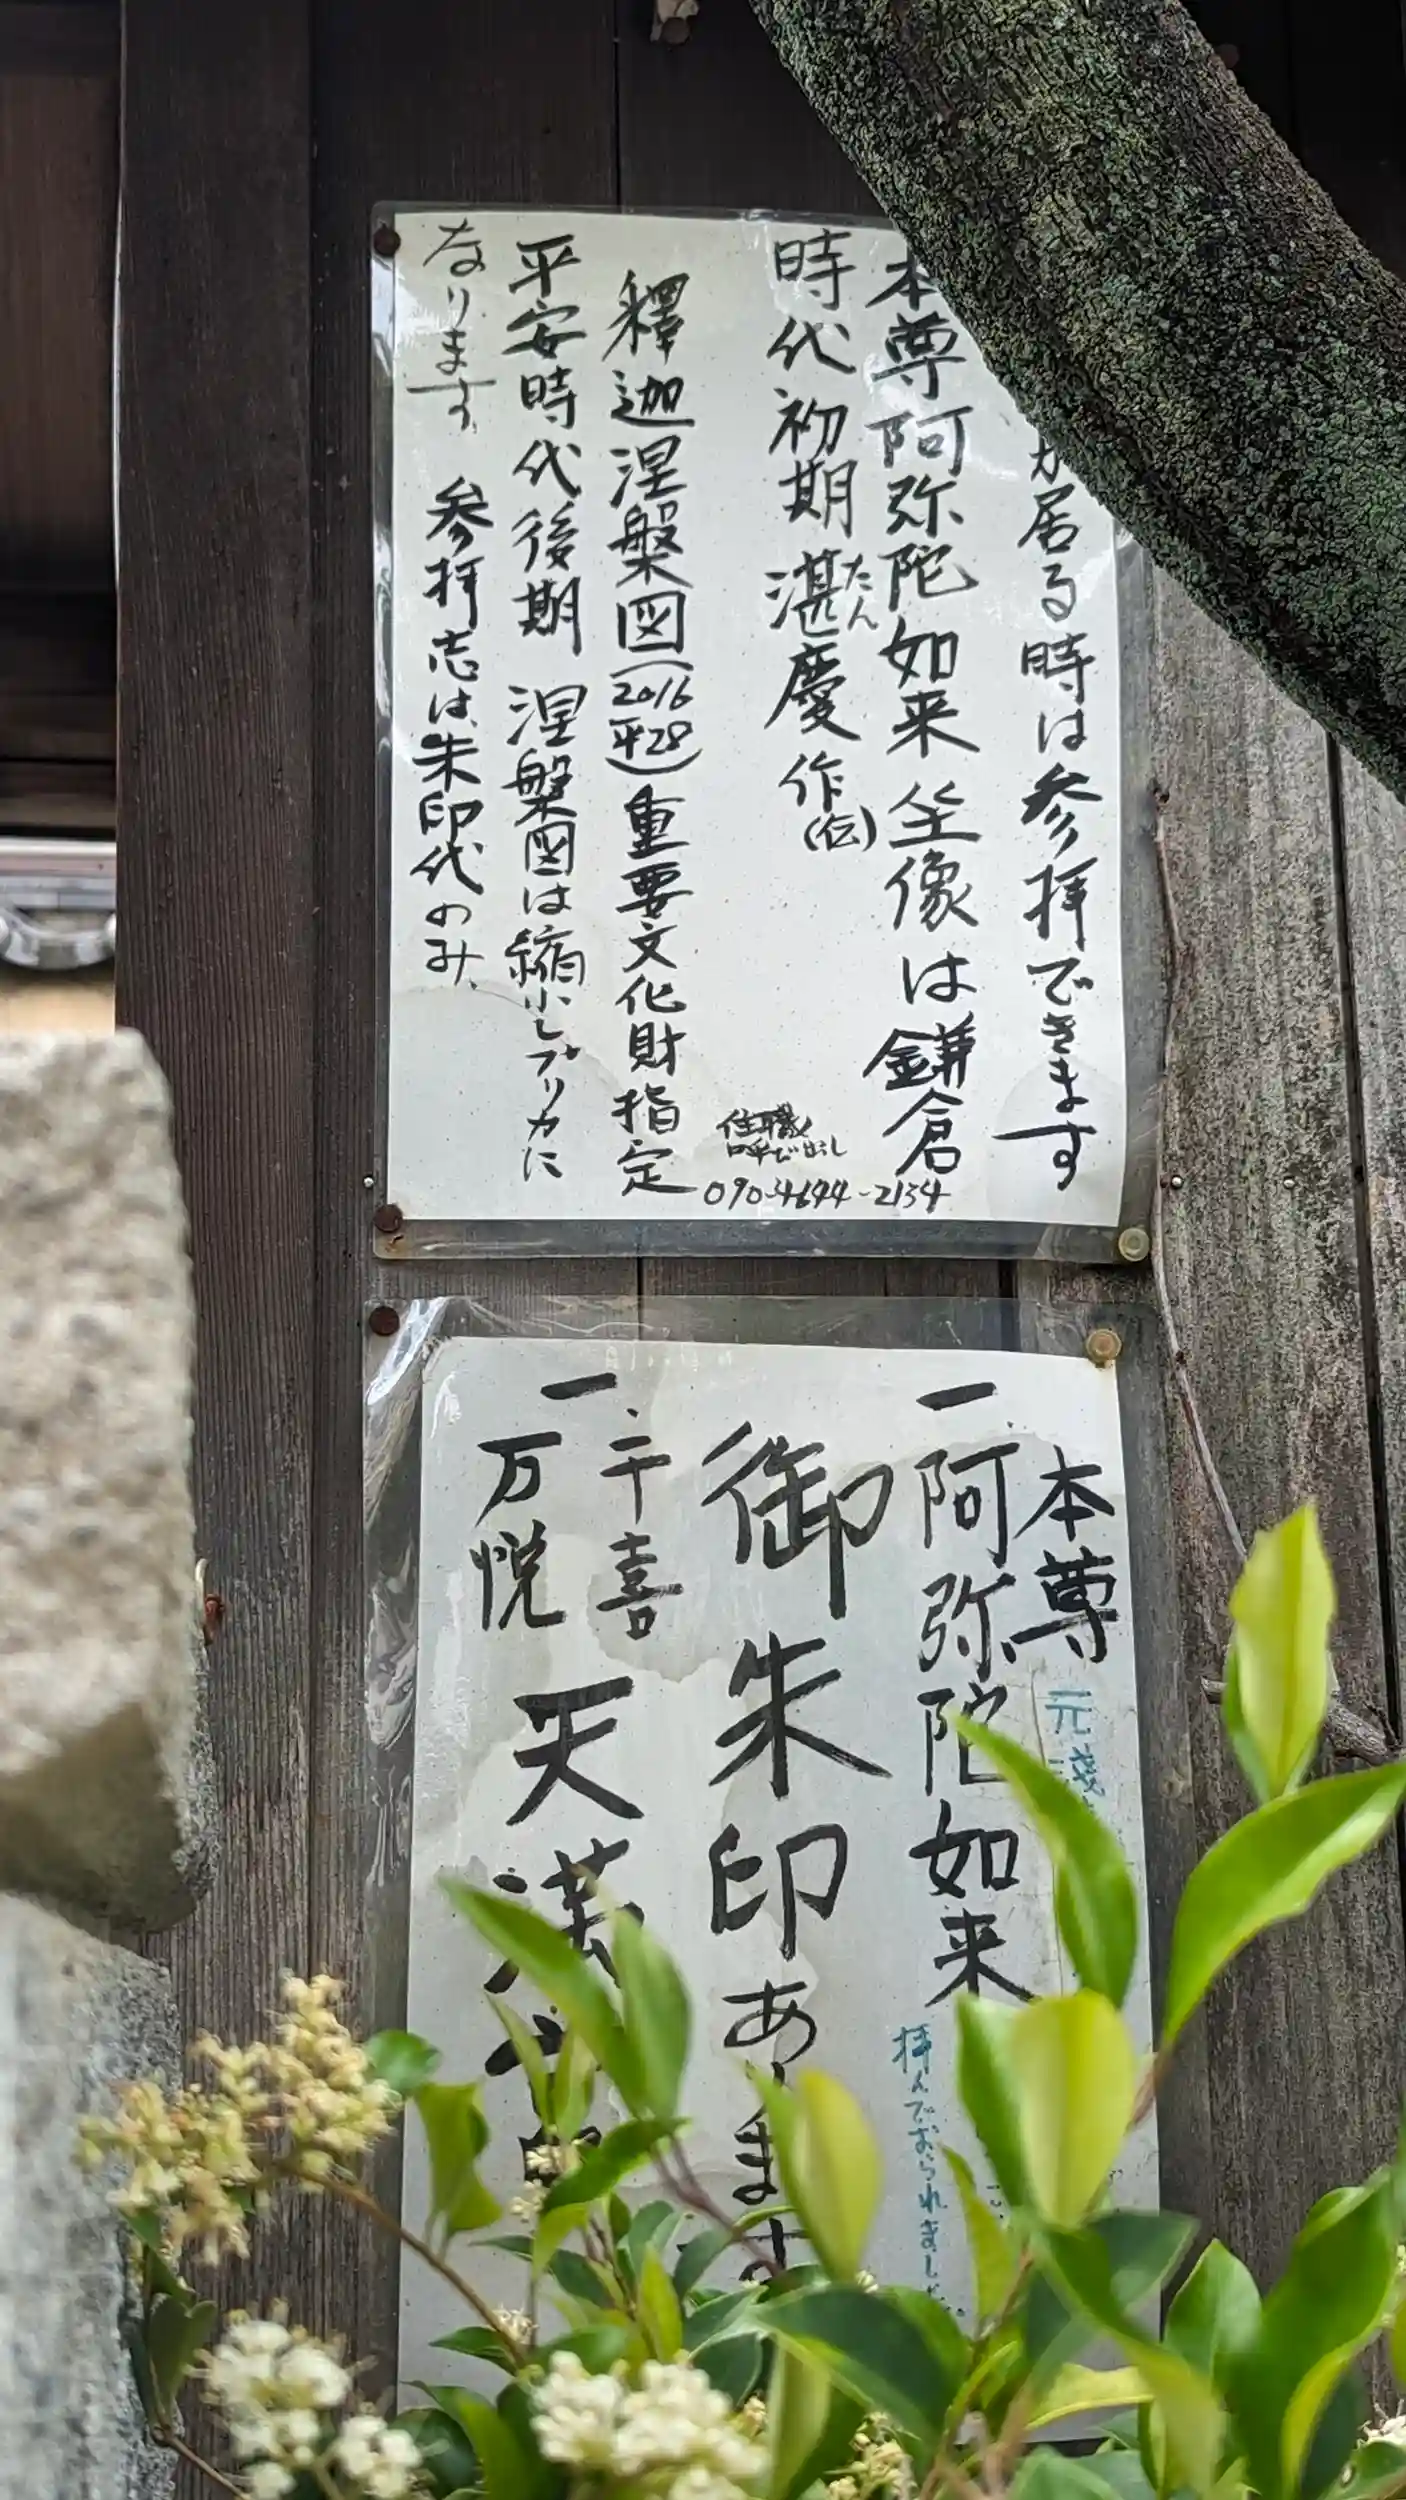 が居る時は参拝できます
本尊阿弥陀如来坐像は鎌倉
時代初期湛慶作(伝)
たん
住職
呼び出し
090-4644-2134
釋迦涅槃図(2016平28)重要文化財指定
平安時代後期 涅槃図は縮小レプリカに
なります 参拝志は、朱印代のみ、
本尊 元
一阿弥陀如来
拝んでおられました。
御朱印あります
一、千喜
万悦
天満